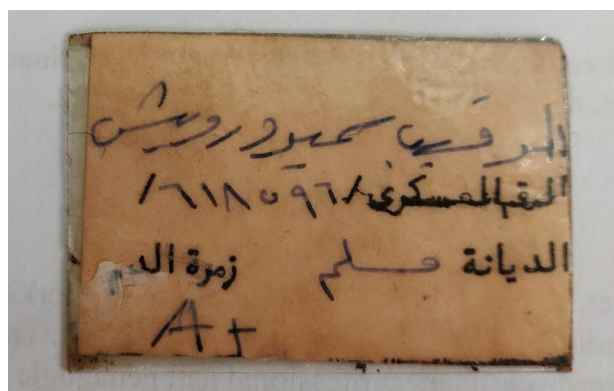 الرقيب حميد درويش
الرقم العسكري /٦١٨٥٩٦/
الديانة مسلم زمرة الدم
A+